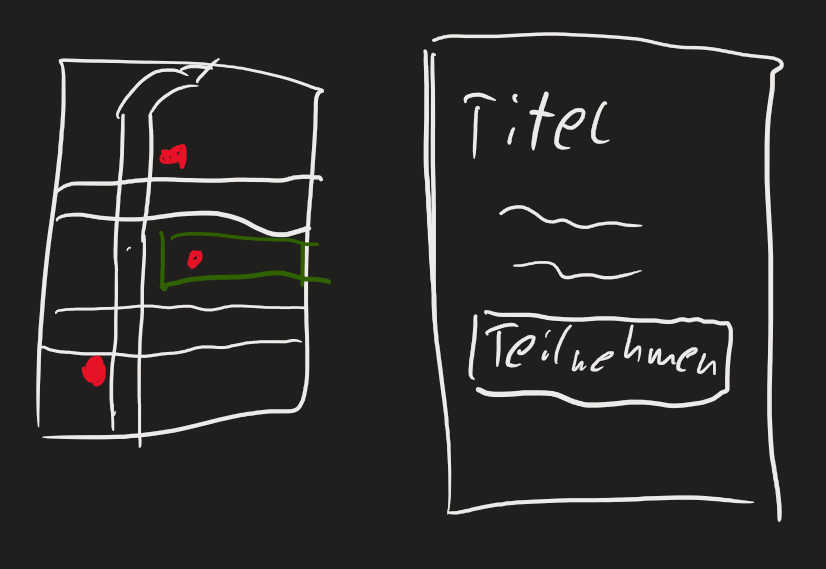 Titel
Teilnehmen